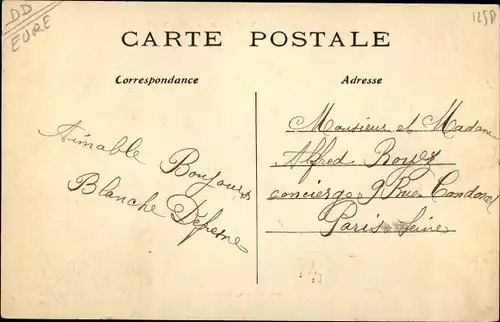 DD
EURE
1258
CARTE POSTALE
Correspondance
Adresse
Aimable Bonjour
Blanche
Monsieur et Madame
Alfred Royez
concierge 9 Rue
Paris Seine